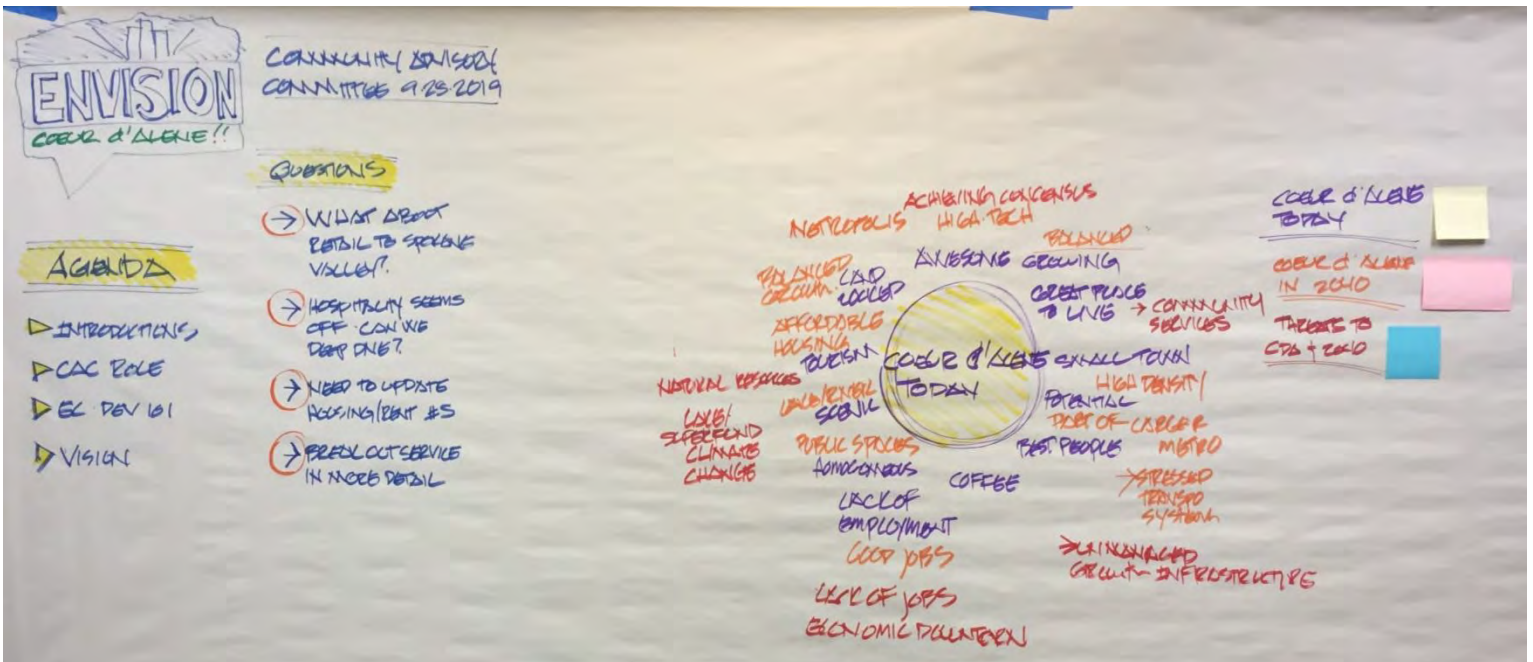 ENVISION
COEUR d'ALENE!!
COMMUNITY ADVISORY
COMMITTEE 9.23.2019
AGENDA
INTRODUCTIONS
CAC ROLE
EC. DEV 101
VISION
QUESTIONS
WHAT ABOUT
RETAIL TO SPOKANE
VALLEY?
HOSPITALITY SEEMS
OFF. CAN WE
DEEP DIVE?
NEED TO UPDATE
HOUSING/RENT #5
BREAK OUT SERVICE
IN MORE DETAIL
ACHIEVING CONCENSUS
METROPOLIS
HIGH TECH
BALANCED
AWESOME
GROWING
BALANCED
GROWTH
LAND
LOCKED
GREAT PLACE
TO LIVE
→ COMMUNITY
SERVICES
AFFORDABLE
HOUSING
TOURISM
COEUR d'ALENE
TODAY
SMALL TOWN
NATURAL RESOURCES
SCENIC
HIGH DENSITY
POTENTIAL
PART OF LARGER
METRO
LAKE/
SUPERFUND
CLIMATE
CHANGE
PUBLIC SPACES
BEST PEOPLE
HOMOGENEOUS
COFFEE
STRESSED
TRANSPO
SYSTEM
LACK OF
EMPLOYMENT
GOOD JOBS
UNMANAGED
GROWTH - INFRASTRUCTURE
LACK OF JOBS
ECONOMIC DOWNTURN
COEUR d'ALENE
TODAY
COEUR d'ALENE
IN 2040
THREATS TO
CDA + 2040